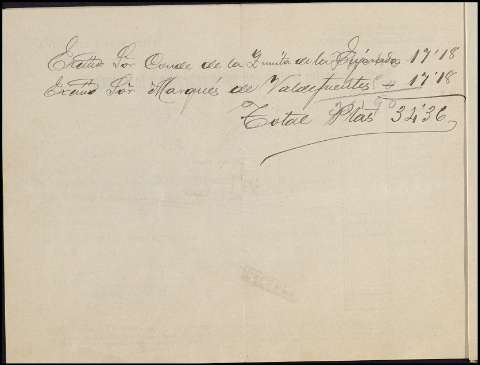 Excmo Sor Conde de la Quinta de la Enjarada 17'18
Excmo Sor Marqués de Valdefuentes 17'18
Total Ptas 34'36